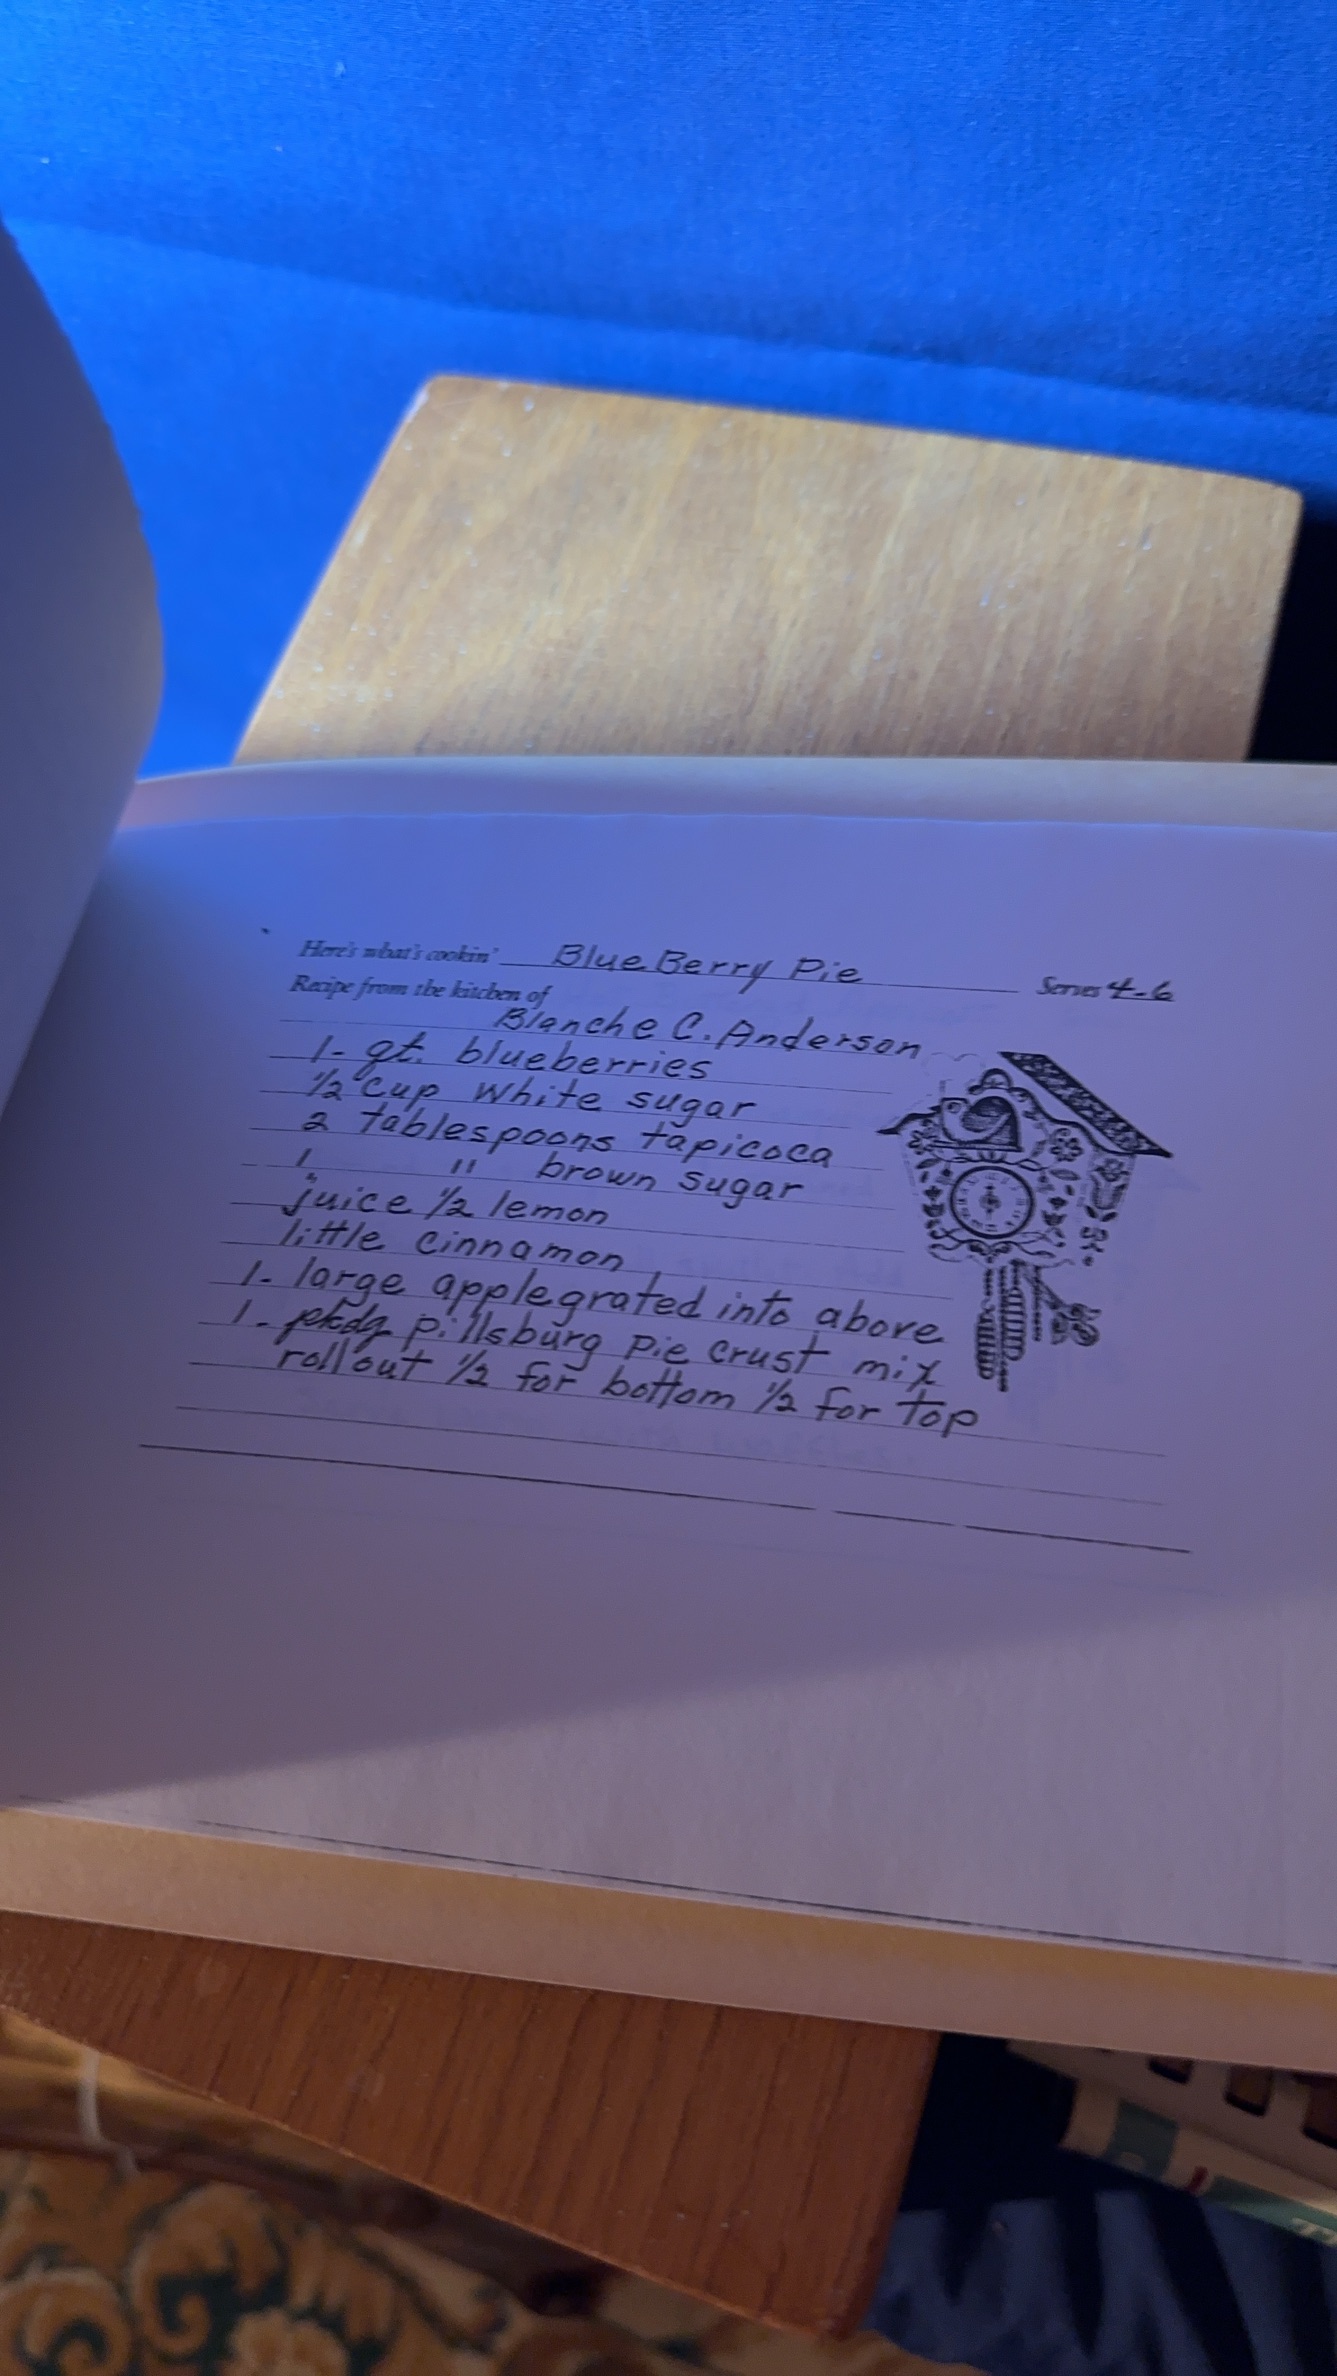 Here's what's cookin' Blue Berry Pie Serves 4-6
Recipe from the kitchen of
Blanche C. Anderson
1- qt. blueberries
1/2 cup white sugar
2 tablespoons tapicoca
1 " brown sugar
juice 1/2 lemon
little cinnamon
1- large apple grated into above
1- pkdg pillsburg pie crust mix
roll out 1/2 for bottom 1/2 for top